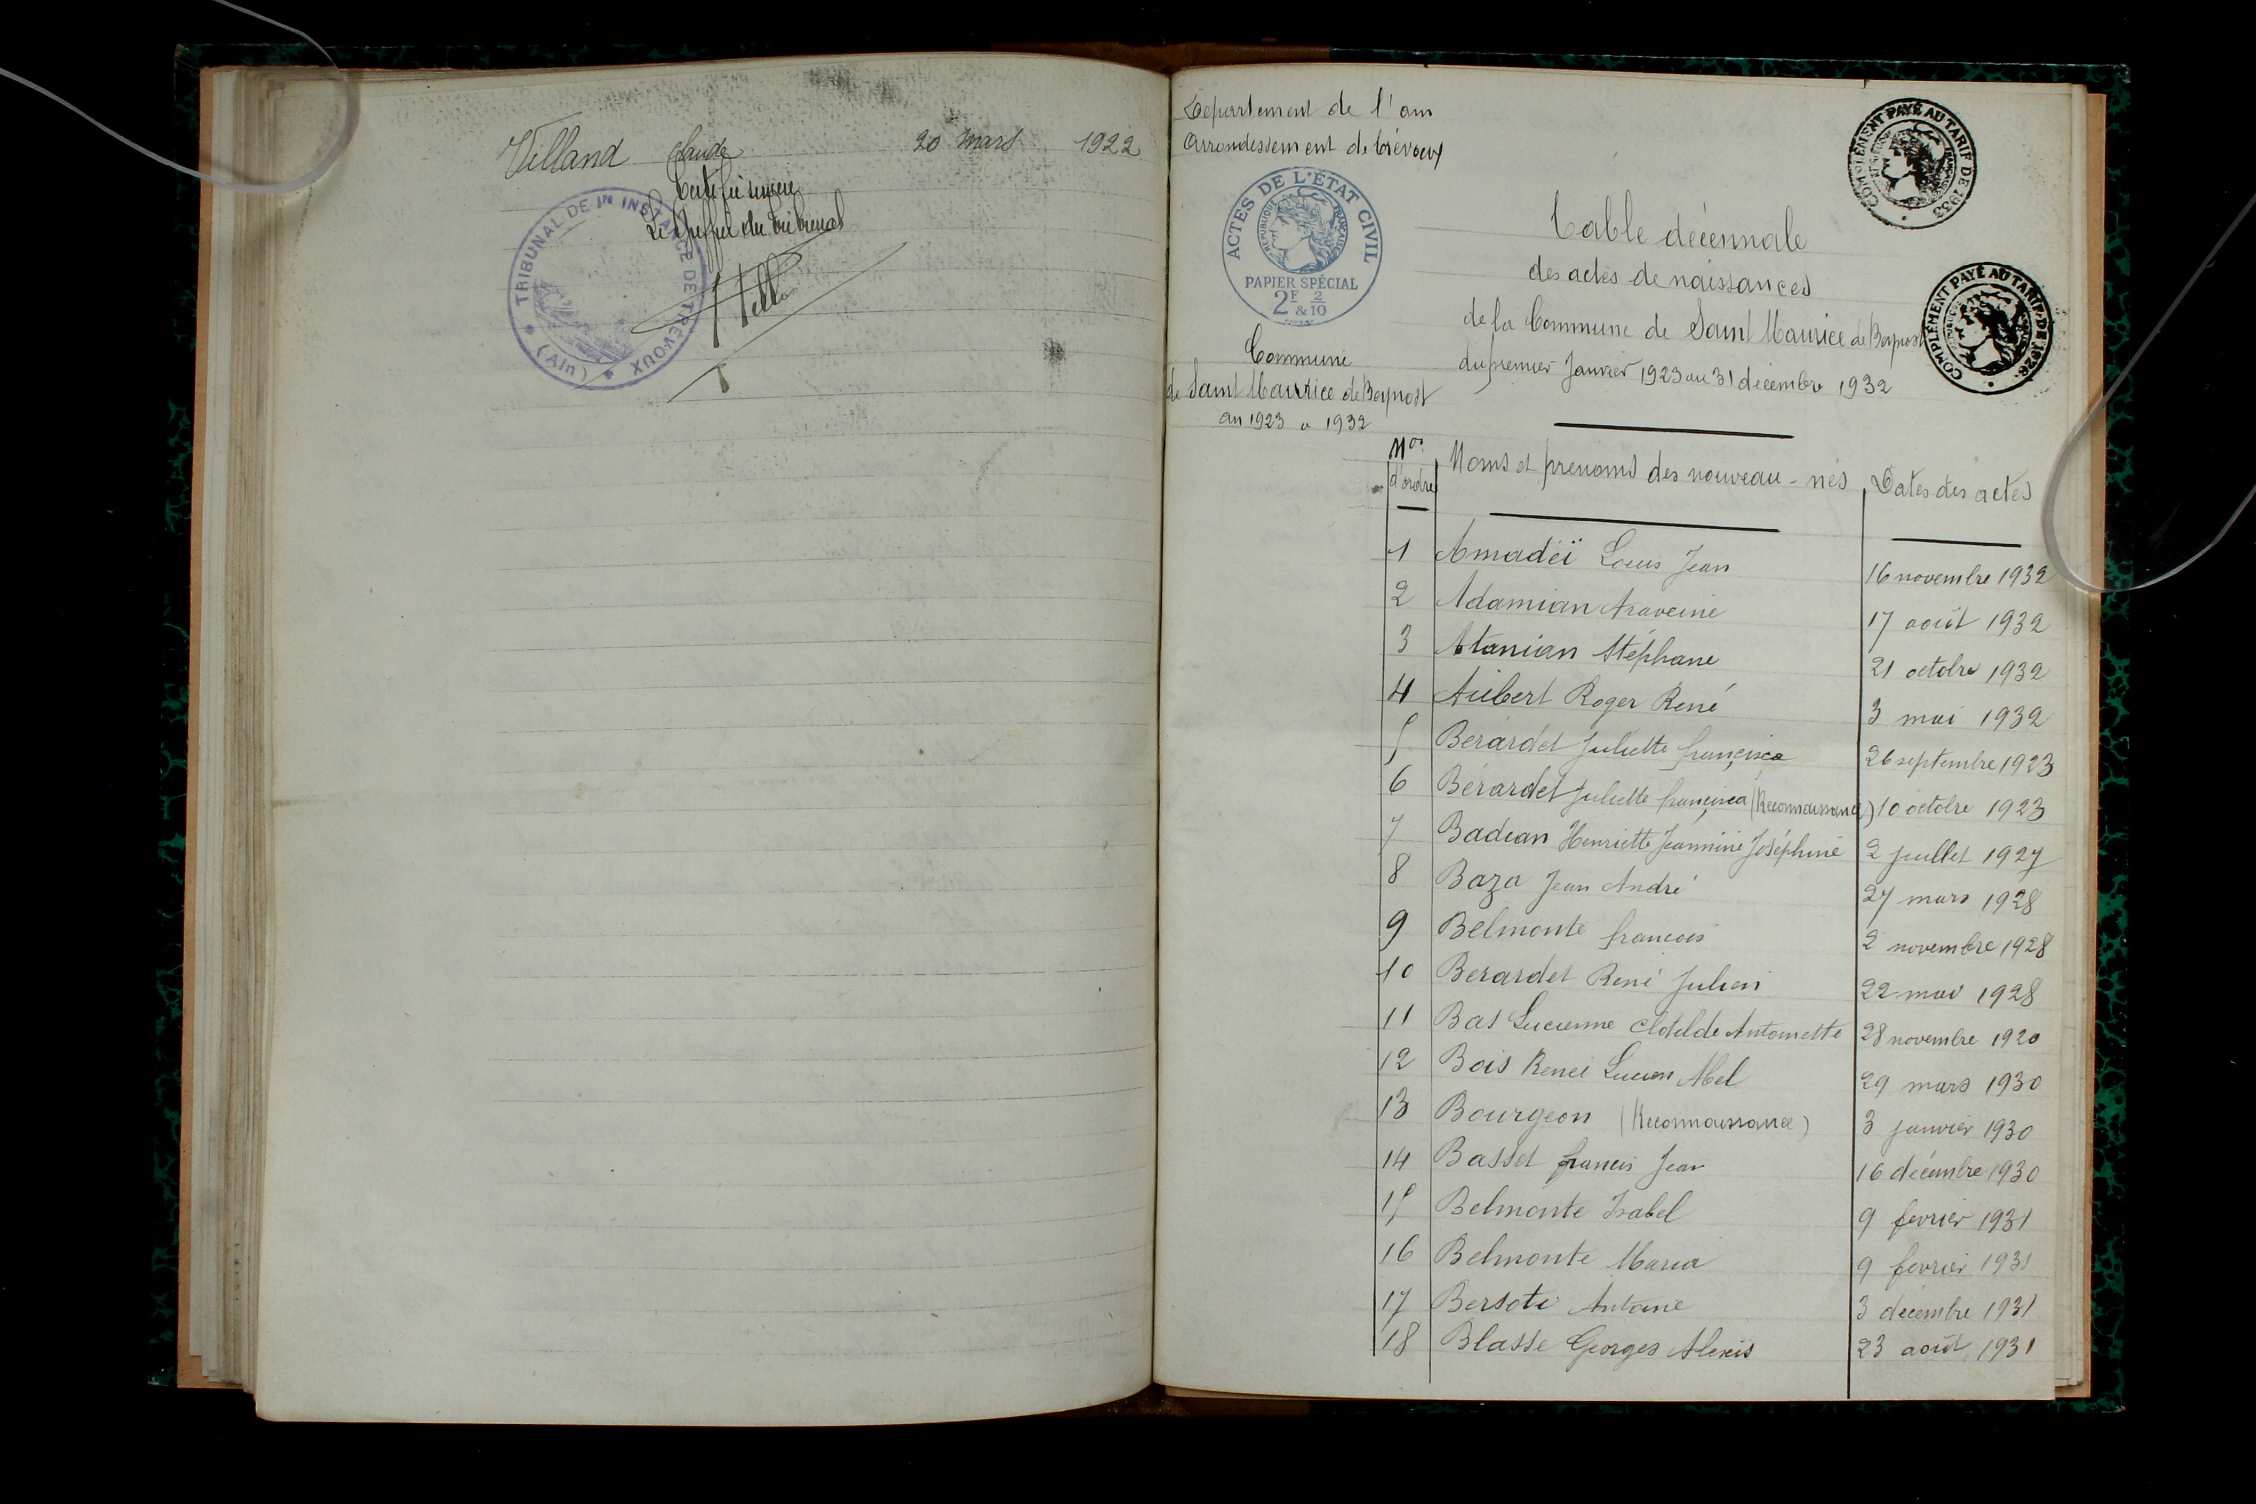 Villand Claude 20 mars 1922
Certifié sincère
Le Greffier du tribunal
TRIBUNAL DE 1re INSTANCE DE TRÉVOUX
(AIN)
Departement de l'ain
Arrondissement de Trévoux
ACTES DE L'ÉTAT CIVIL
RÉPUBLIQUE FRANÇAISE
PAPIER SPÉCIAL
2F & 2/10
Commune
de Saint Maurice de Beynost
an 1923 a 1932
COMPLÉMENT PAYÉ AU TARIF DE 1933
COMPLÉMENT PAYÉ AU TARIF DE 1926
Table décennale
des actes de naissances
de la Commune de Saint Maurice de Beynost
du premier Janvier 1923 au 31 decembre 1932
Nos d'ordre Noms et prenoms des nouveau-nés Dates des actes
1 Amadéï Louis Jean 16 novembre 1932
2 Adamian Araveine 17 août 1932
3 Atanian Stéphane 21 octobre 1932
4 Aubert Roger René 3 mai 1932
5 Bérardet Juliette françisca 26 septembre 1923
6 Bérardet Juliette françisca (Reconnaissance) 10 octobre 1923
7 Badean Henriette Jeannine Joséphine 2 juillet 1927
8 Baza Jean André 27 mars 1928
9 Belmonte francois 2 novembre 1928
10 Berardet René Julien 22 mai 1928
11 Bas Lucienne Clotilde Antoinette 28 novembre 1920
12 Bois Renée Lucien Abel 29 mars 1930
13 Bourgeon (Reconnaissance) 3 janvier 1930
14 Basset francis Jean 16 décembre 1930
15 Belmonte Isabel 9 fevrier 1931
16 Belmonte Maria 9 fevrier 1931
17 Bersoti Antoine 3 decembre 1931
18 Blasse Georges Alexis 23 août 1931